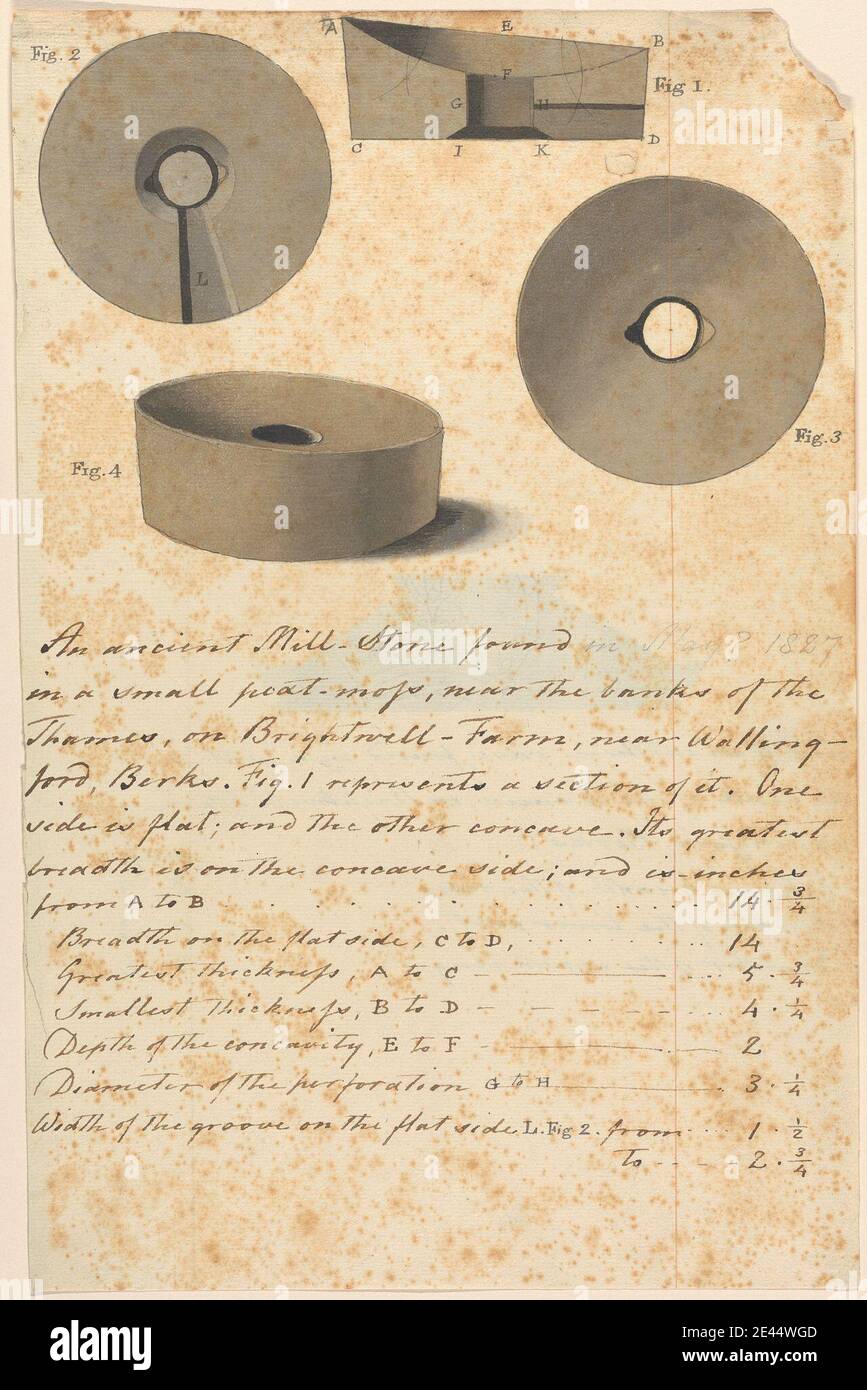 A
E
B
Fig. 2
F
Fig 1.
G
H
C
I
K
D
L
Fig. 3
Fig. 4
An ancient Mill-Stone found in May? 1827
in a small peat-moſs, near the banks of the
Thames, on Brightwell-Farm, near Walling-
ford, Berks. Fig. 1 represents a section of it. One
side is flat; and the other concave. Its greatest
breadth is on the concave side; and is-inches
from A to B . . . . . . . . . . . . 14 . 3/4
Breadth on the flat side, C to D, . . . . . . . . 14
Greatest thickneſs, A to C - — ... 5 . 3/4
Smallest thickneſs, B to D - - - - - - ... 4 . 1/4
Depth of the concavity, E to F - — 2
Diameter of the perforation G to H — 3 . 1/4
Width of the groove on the flat side L. Fig 2. from ... 1 . 1/2
to - - - - 2 . 3/4
alamy
a
a
a
a
a
a
alamy
Image ID: 2E44WGD
www.alamy.com